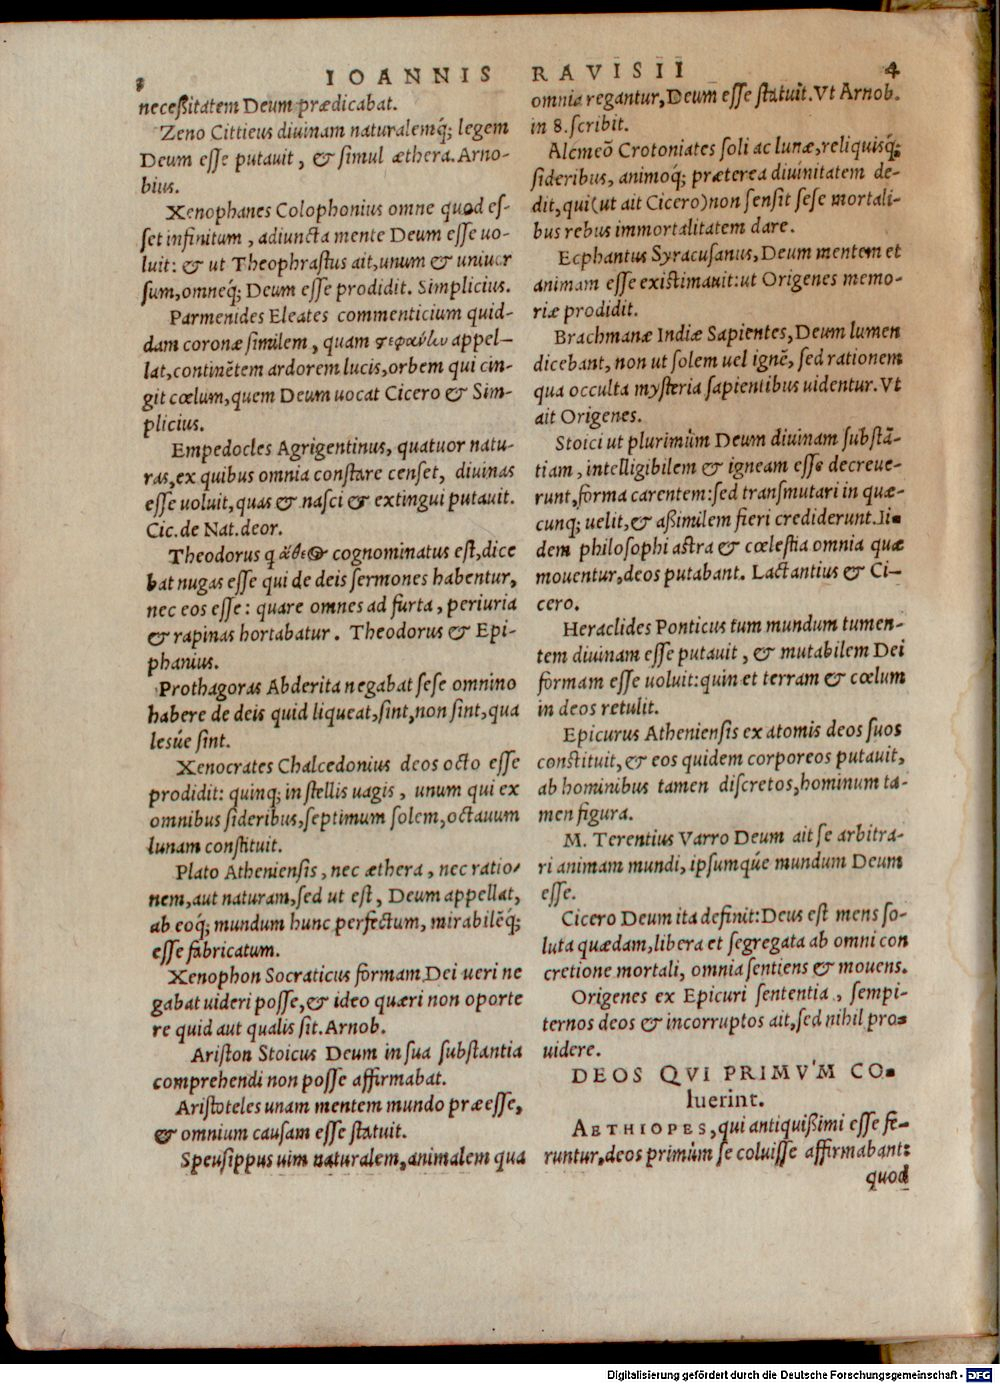 3 IOANNIS RAVISII 4
neceßitatem Deum prædicabat.
Zeno Cittieus diuinam naturalemq́; legem
Deum eſſe putauit, & simul æthera. Arno-
bius.
Xenophanes Colophonius omne quod eſ-
ſet infinitum, adiuncta mente Deum eſſe uo-
luit: & ut Theophraſtus ait, unum & uniuer
ſum, omneq́; Deum eſſe prodidit. Simplicius.
Parmenides Eleates commenticium quid-
dam coronæ ſimilem, quam ςεφανίω appel-
lat, continẽtem ardorem lucis, orbem qui cin-
git cœlum, quem Deum uocat Cicero & Sim-
plicius.
Empedocles Agrigentinus, quatuor natu-
ras, ex quibus omnia conſtare cenſet, diuinas
eſſe uoluit, quas & naſci & extingui putauit.
Cic. de Nat. deor.
Theodorus q ἄθεος cognominatus eſt, dice
bat nugas eſſe qui de deis ſermones habentur,
nec eos eſſe: quare omnes ad furta, periuria
& rapinas hortabatur. Theodorus & Epi-
phanius.
Prothagoras Abderita negabat ſeſe omnino
habere de deis quid liqueat, ſint, non ſint, qua
lesúe ſint.
Xenocrates Chalcedonius deos octo eſſe
prodidit: quinq; in ſtellis uagis, unum qui ex
omnibus ſideribus, ſeptimum ſolem, octauum
lunam conſtituit.
Plato Athenienſis, nec æthera, nec ratio-
nem, aut naturam, ſed ut eſt, Deum appellat,
ab eoq́; mundum hunc perfectum, mirabilẽq́;
eſſe fabricatum.
Xenophon Socraticus formam Dei ueri ne
gabat uideri poſſe, & ideo quæri non oporte
re quid aut qualis ſit. Arnob.
Ariſton Stoicus Deum in ſua ſubſtantia
comprehendi non poſſe affirmabat.
Ariſtoteles unam mentem mundo præeſſe,
& omnium cauſam eſſe ſtatuit.
Speuſippus uim naturalem, animalem qua
omnia regantur, Deum eſſe ſtatuit. Vt Arnob.
in 8. ſcribit.
Alcmeõ Crotoniates ſoli ac lunæ, reliquisq́;
ſideribus, animoq́; præterea diuinitatem de-
dit, qui (ut ait Cicero) non ſenſit ſeſe mortali-
bus rebus immortalitatem dare.
Ecphantus Syracuſanus, Deum mentem et
animam eſſe existimauit: ut Origenes memo-
riæ prodidit.
Brachmanæ Indiæ Sapientes, Deum lumen
dicebant, non ut ſolem uel ignẽ, ſed rationem
qua occulta myſteria ſapientibus uidentur. Vt
ait Origenes.
Stoici ut plurimùm Deum diuinam ſubſtã-
tiam, intelligibilem & igneam eſſe decreue-
runt, forma carentem: ſed tranſmutari in quæ-
cunq; uelit, & aßimilem fieri crediderunt. Ii-
dem philoſophi aſtra & cœleſtia omnia quæ
mouentur, deos putabant. Lactantius & Ci-
cero.
Heraclides Ponticus tum mundum tumen-
tem diuinam eſſe putauit, & mutabilem Dei
formam eſſe uoluit: quin et terram & cœlum
in deos retulit.
Epicurus Athenienſis ex atomis deos ſuos
conſtituit, & eos quidem corporeos putauit,
ab hominibus tamen diſcretos, hominum ta-
men figura.
M. Terentius Varro Deum ait ſe arbitra-
ri animam mundi, ipſumq́ue mundum Deum
eſſe.
Cicero Deum ita definit: Deus eſt mens ſo-
luta quædam, libera et ſegregata ab omni con
cretione mortali, omnia ſentiens & mouens.
Origenes ex Epicuri ſententia, ſempi-
ternos deos & incorruptos ait, ſed nihil pro-
uidere.
DEOS QVI PRIMV́M CO-
luerint.
AETHIOPES, qui antiquißimi eſſe fe-
runtur, deos primùm ſe coluiſſe affirmabant:
quod
Digitalisierung gefördert durch die Deutsche Forschungsgemeinschaft - DFG